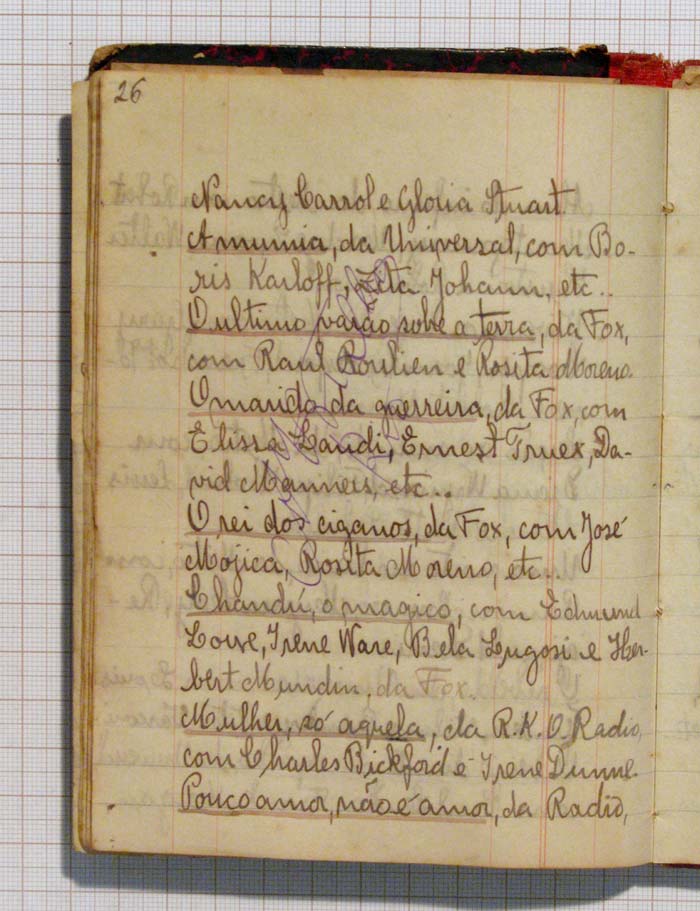 26
Nancy Carrol e Gloria Stuart.
A mumia, da Universal, com Bo-
ris Karloff, Zita Johann, etc..
O ultimo varão sobre a terra, da Fox,
com Raul Roulien e Rosita Moreno.
O marido da guerreira, da Fox, com
Elissa Landi, Ernest Truex, Da-
vid Manners, etc..
O rei dos ciganos, da Fox, com José
Mojica, Rosita Moreno, etc..
Chandú, o magico, com Edmund
Lowe, Irene Ware, Bela Lugosi e Her-
bert Mundin, da Fox.
Mulher, só aquela, da R.K.O. Radio,
com Charles Bickford e Irene Dunne.
Pouco amor, não é amor, da Radio,